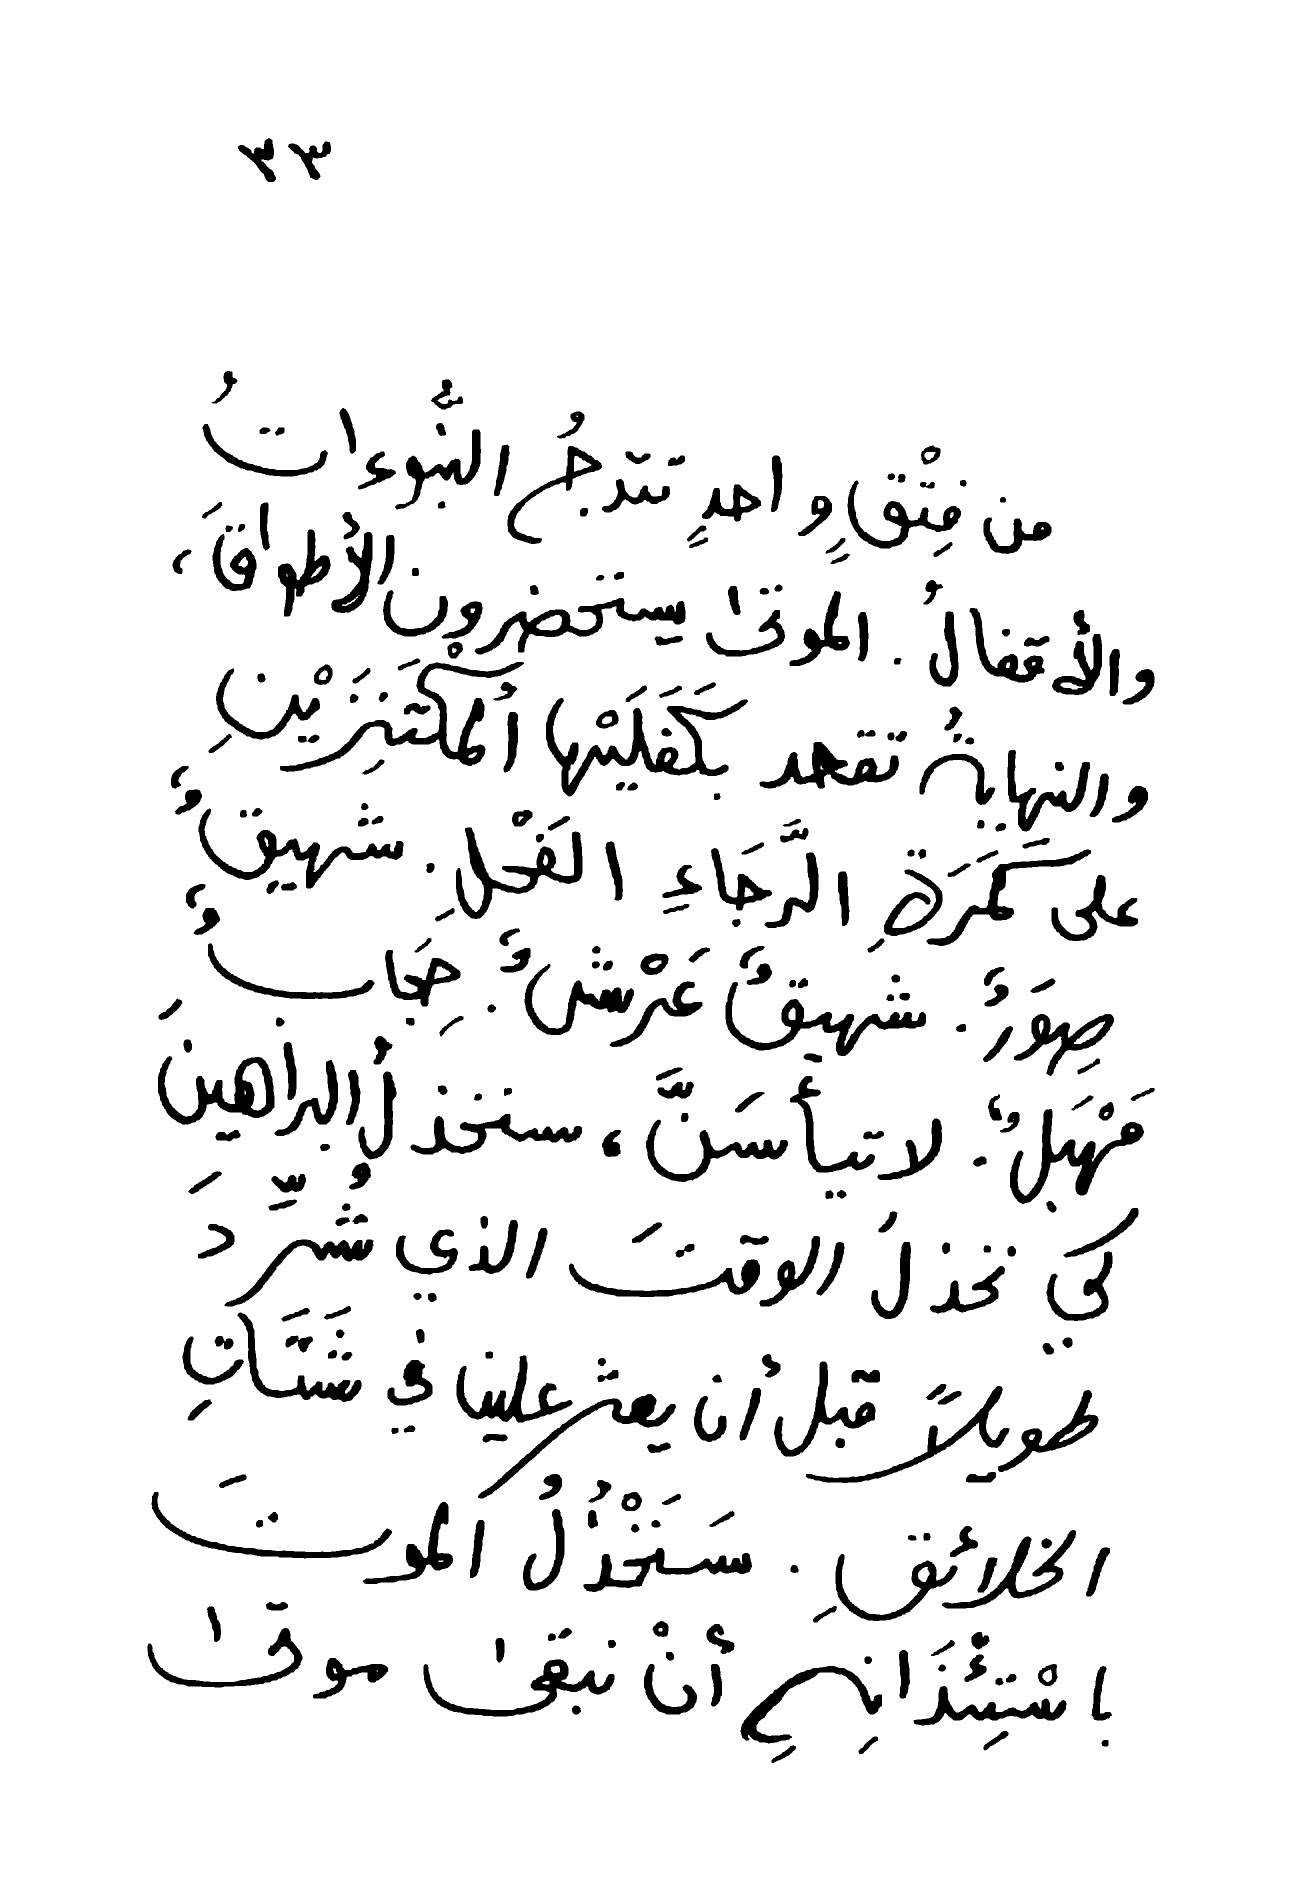 ٣٣
من فِتْقٍ واحدٍ تتدحرجُ النُّبوءاتُ
والأقفالُ . الموتىٰ يستحضرون الأطواقَ،
والنهايةُ تقحد بكَفَلَيْها المُكْتَنِزَيْنِ
على كَمَرَةِ الرَّجَاءِ الفَحْلِ . شهيقٌ
صِوَرٌ . شهيقٌ عَرْشٌ . حِجَابٌ
مَهْبَلٌ . لا تيأسَنَّ ، سنخذلُ البراهينَ
كي نخذلَ الوقتَ الذي شُرِّدَ
طويلاً قبل أن يعثر علينا في شَتَاتِ
الخلائقِ . سَنَخْذُلُ الموتَ
باسْتِئْذَانِهِ أنْ نبقىٰ موتىٰ